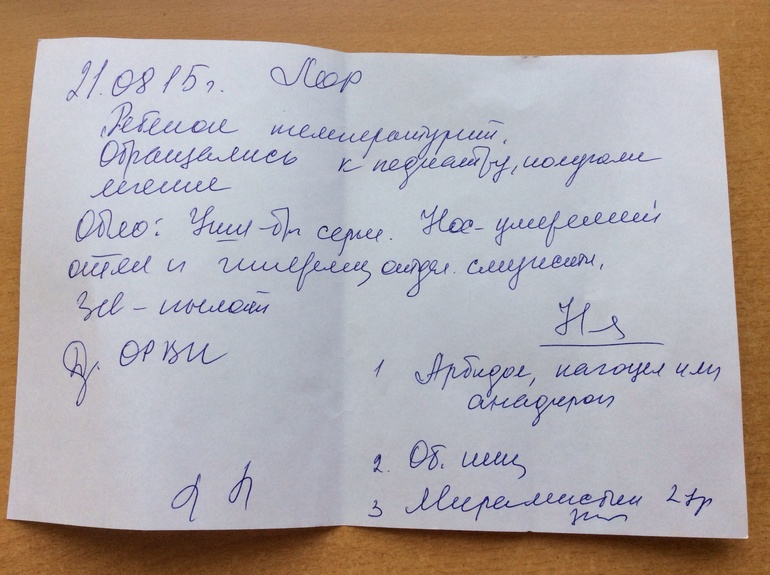 21.08 15г. Лор
Ребенок температурит.
Обращались к педиатру, получали
лечение
Об-но: Уши-бл серые. Нос-умеренный
отек и гиперемия, отдел. слизист.
Зев - пылает
Д. ОРВИ
Н-я
1 Арбидол, кагоцел или
анаферон
2. Об. пищ
3 Мирамистин 2 хр